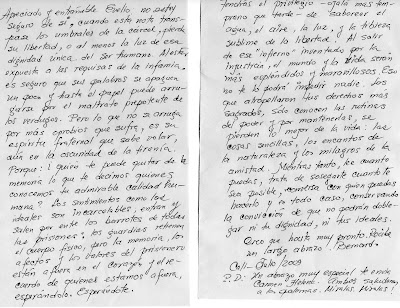 Apreciado y entrañable Evelio no estoy
seguro de si, cuando esta nota trans-
pase los umbrales de la carcel, pierda
su libertad, o al menos la luz de esa
dignidad única del ser humano. Al estar
expuesto a las requisas de la infamia,
es seguro que sus palabras se apaguen
un poco y hasta el papel puede arru-
garse por el maltrato prepotente de
los verdugos. Pero lo que no se arruga
por más oprobios que sufra, es su
espíritu fraternal que sabe volar
aún en la oscuridad de la tiranía.
Porque: ¿Quién te puede quitar de la
memoria lo que te decimos quienes
conocemos tu admirable calidad hu-
mana? Los sentimientos como los
ideales son incarcelables, entran y
salen por entre los barrotes de todas
las prisiones; los guardias retienen
el cuerpo físico, pero la memoria, los
afectos y los valores del prisionero
están afuera en el corazón y el re-
cuerdo de quienes estamos afuera,
esperándolo. Esperándote.
Tendrás el privilegio - ojalá más tem-
prano que tarde - de saborear el
agua, el aire, la luz, y la tibieza
sublime de la libertad. Al salir
de ese "infierno" inventado por la
injusticia, el mundo y la vida serán
más espléndidos y maravillosos. Eso
no te lo podrá impedir nadie. Los
que atropellaron tus derechos más
sagrados, sólo conocen las rutinas
del poder y por mantenerlas, se
pierden lo mejor de la vida: las
cosas sencillas, los encantos de
la naturaleza y los milagros de la
amistad. Mientras tanto, en cuanto
puedas, trata de sosegarte cuanto te
sea posible, conversa con quien puedas
hacerlo y en todo caso, conservando
la convicción de que no podrán doble-
gar ni tu dignidad, ni tus ideales.
Creo que hasta muy pronto. Recibe
un largo abrazo, Bernard.
Cali- Julio/2009
P.D: Un abrazo muy especial te envía
Carmen Ambos saludamos
a tu paloma.